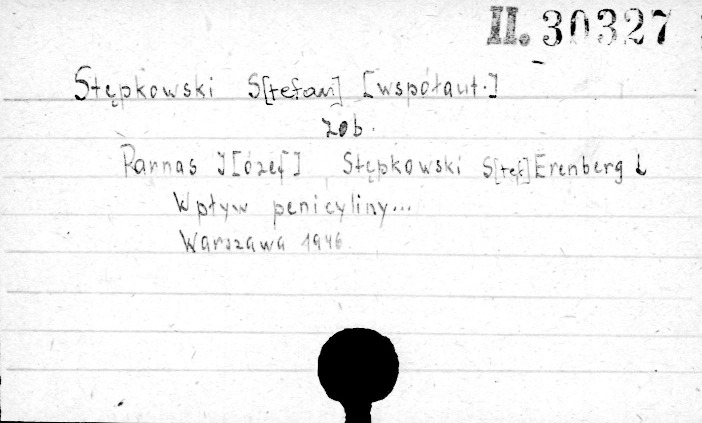 II. 30327
Stępkowski S[tefan] [współaut.]
zob.
Parnas J[ózef] Stępkowski S[tef] Erenberg L
Wpływ penicyliny...
Warszawa 1946